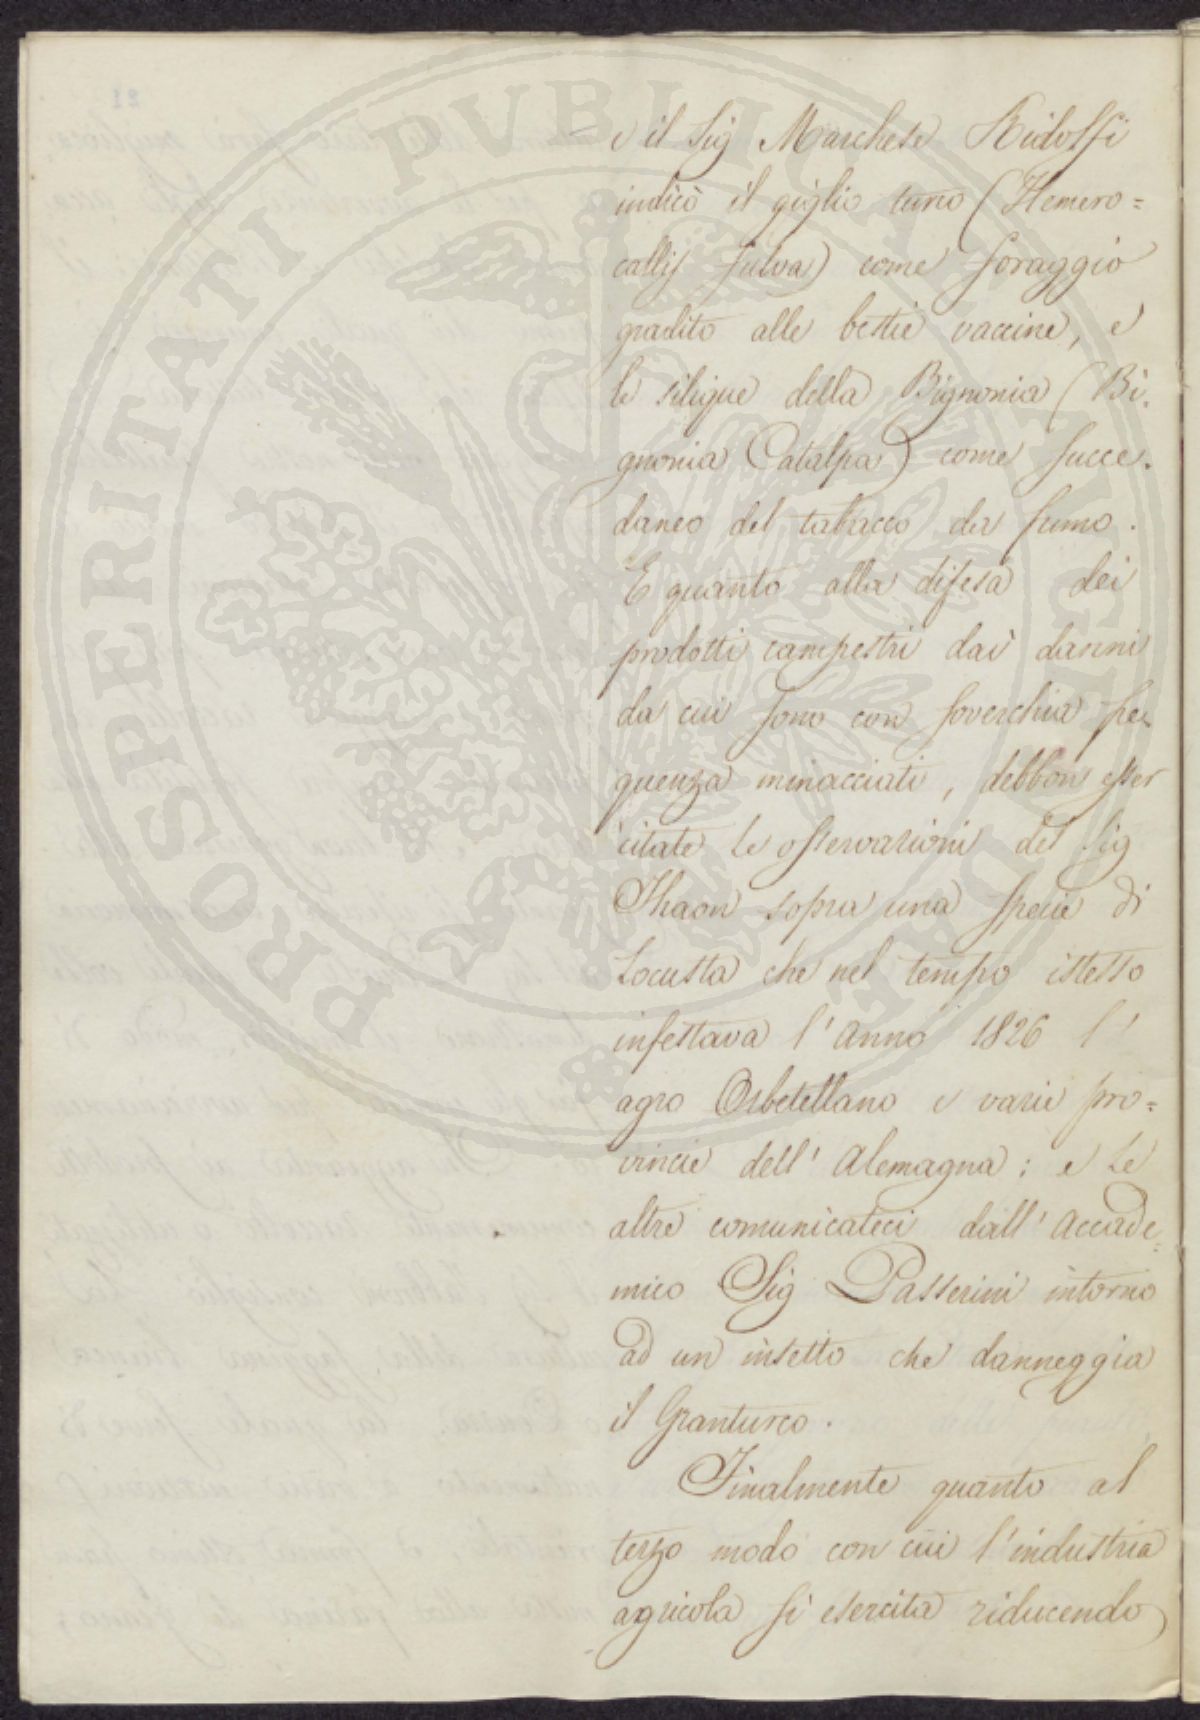 PROSPERITATI PUBLICAE AUGENDAE
e il Sig Marchese Ridolfi
indicò il giglio turco (Hemero=
callis fulva) come foraggio
gradito alle bestie vaccine, e
le silique della Bignonia (Bi.
gnonia Catalpa) come succe.
daneo del tabacco da fumo.
E quanto alla difesa dei
prodotti campestri dai danni
da cui sono con soverchia fre
quenza minacciati, debbon esser
citate le osservazioni del Sig
Thaon sopra una specie di
Locusta che nel tempo istesso
infestava l'Anno 1826 l'
agro Orbetellano e varie pro=
vincie dell'Alemagna; e le
altre comunicateci dall'Accade=
mico Sig Passerini intorno
ad un insetto che danneggia
il Granturco.
Finalmente quanto al
terzo modo con cui l'industria
agricola si esercita riducendo